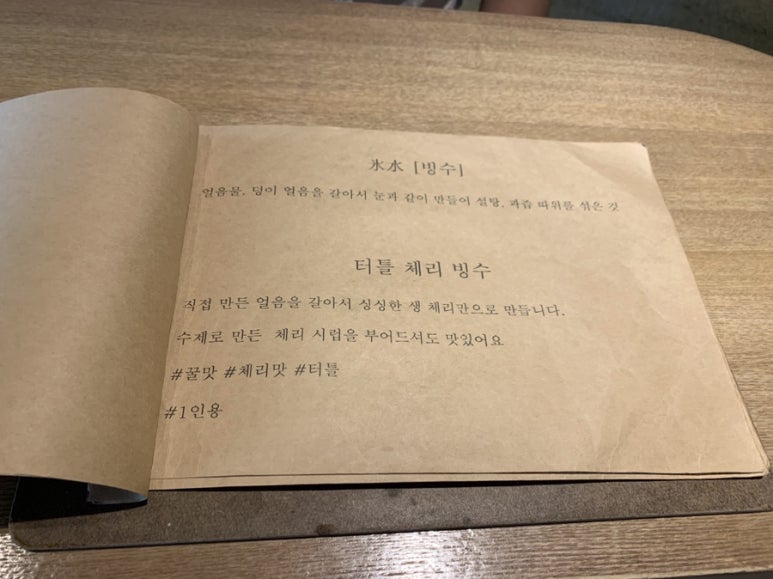 氷水 [빙수]
얼음물. 덩이 얼음을 갈아서 눈과 같이 만들어 설탕, 과즙 따위를 섞은 것
터틀 체리 빙수
직접 만든 얼음을 갈아서 싱싱한 생 체리만으로 만듭니다.
수제로 만든 체리 시럽을 부어드셔도 맛있어요
#꿀맛 #체리맛 #터틀
#1인용